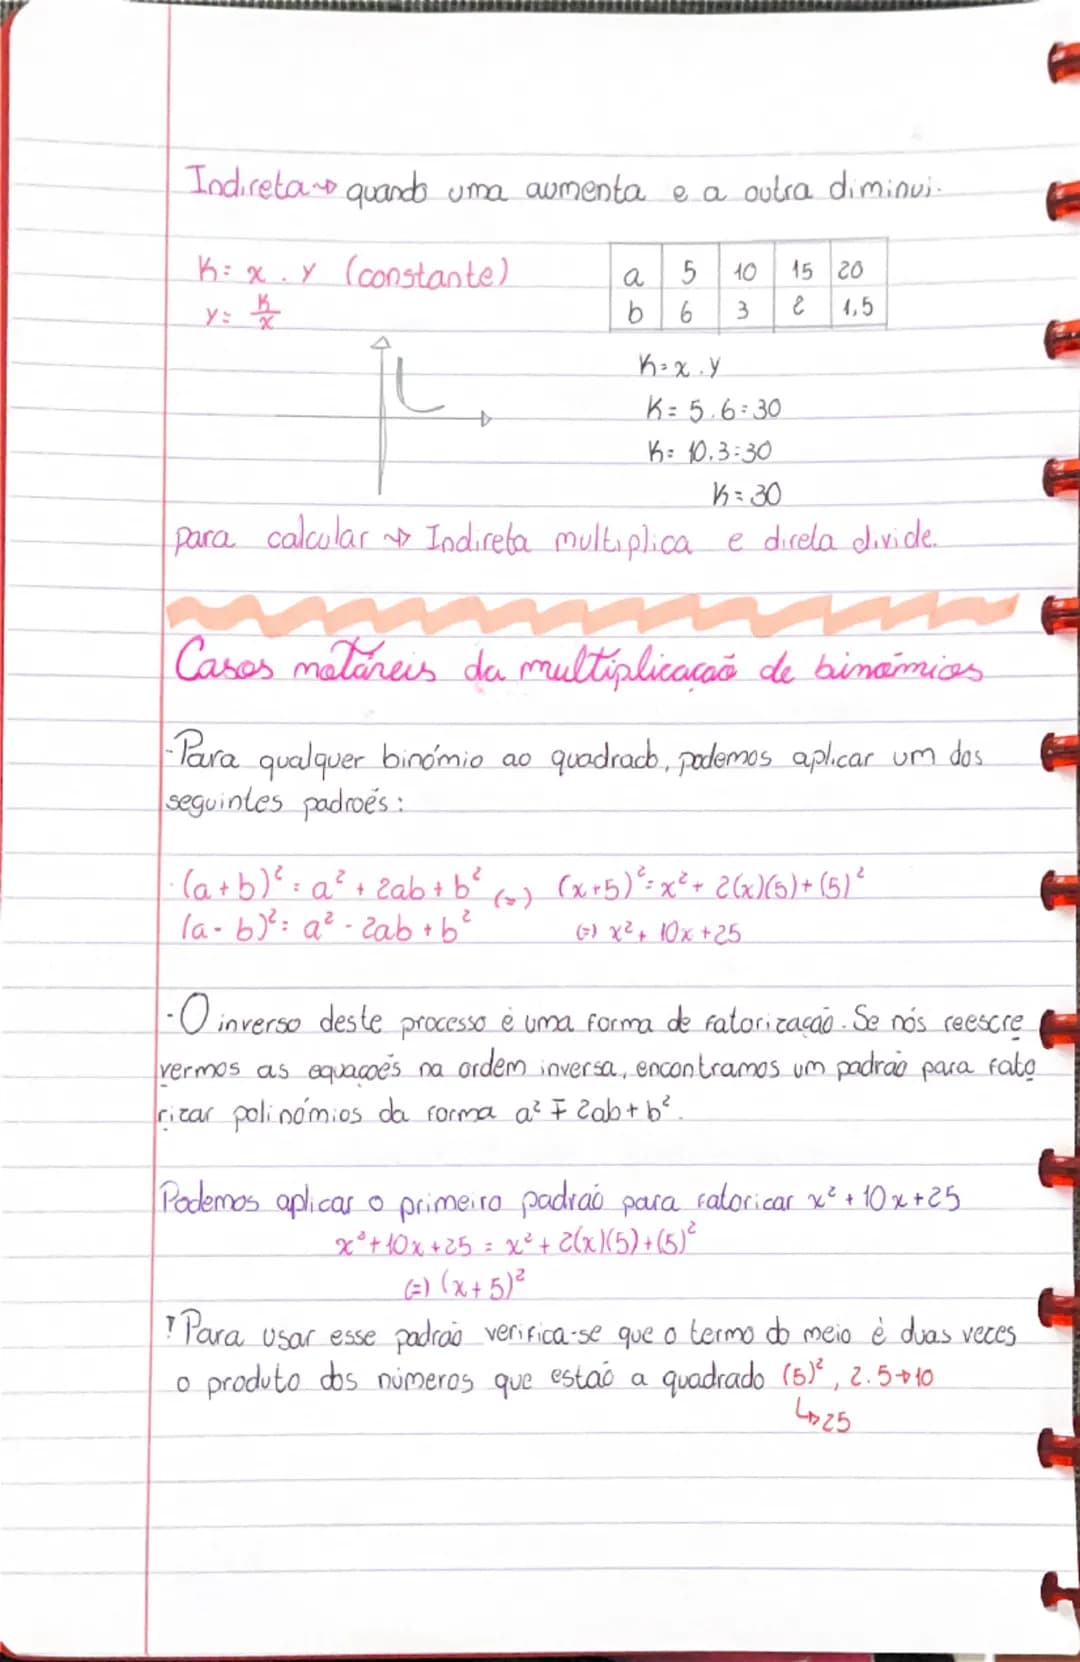 Indireta → quando uma aumenta e a outra diminui.
K = x . y (constante)
y = K/x
a 5 10 15 20
b 6 3 2 1,5
K = x . y
K = 5 . 6 = 30
K = 10 . 3 = 30
K = 30
para calcular → Indireta multiplica e direta divide.
Casos notáveis da multiplicação de binómios
- Para qualquer binómio ao quadrado, podemos aplicar um dos
seguintes padroẽs :
· (a + b)² = a² + 2ab + b² (=) (x + 5)² = x² + 2(x)(5) + (5)²
(a - b)² = a² - 2ab + b² (=) x² + 10x + 25
· O inverso deste processo é uma forma de fatorização. Se nós reescre
vermos as equaçoẽs na ordem inversa, encontramos um padrão para fato
rizar polinómios da forma a² ∓ 2ab + b².
Podemos aplicar o primeiro padrão para fatoricar x² + 10x + 25
x² + 10x + 25 = x² + 2(x)(5) + (5)²
(=) (x + 5)²
! Para usar esse padrão verifica-se que o termo do meio é duas vezes
o produto dos números que estão a quadrado (5)², 2.5 → 10
↳ 25